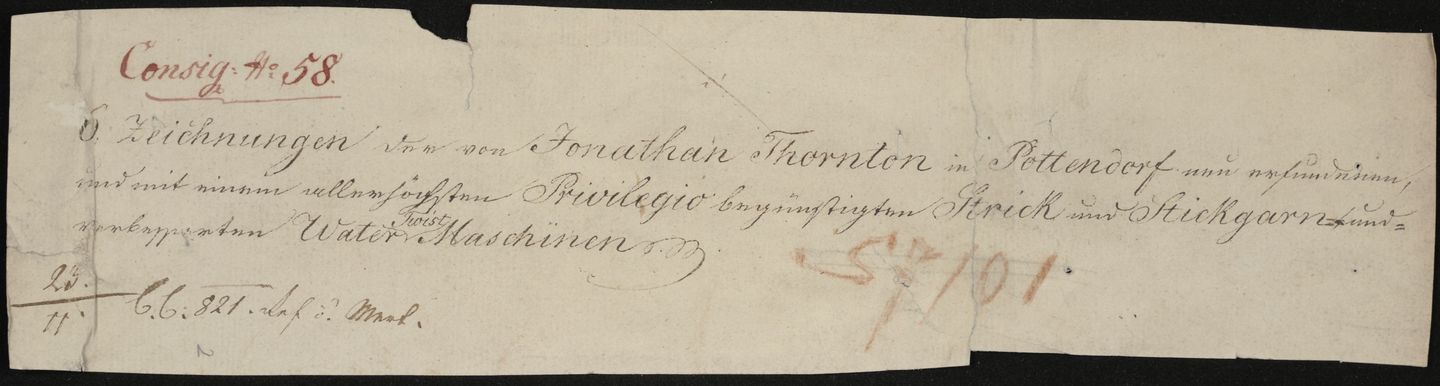 Consig: No 58.
6. Zeichnungen der von Jonathan Thornton in Pottendorf neu erfundenen,
und mit einem allerhöchsten Privilegio begünstigten Strick und Stickgarn und=
verbesserten Water Twist Maschinen
23.
11.
C.C. 821.